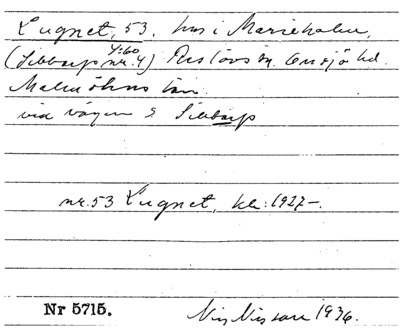 Lugnet, 53. hus i Marieholm,
4:60
(Sibbarp nr. 4) Reslövs sn. Onsjö hd.
Malmöhus län.
vid vägen S Sibbarp
nr. 53 Lugnet, kl: 1927-.
Nr 5715.
Nils Nilsson 1936.